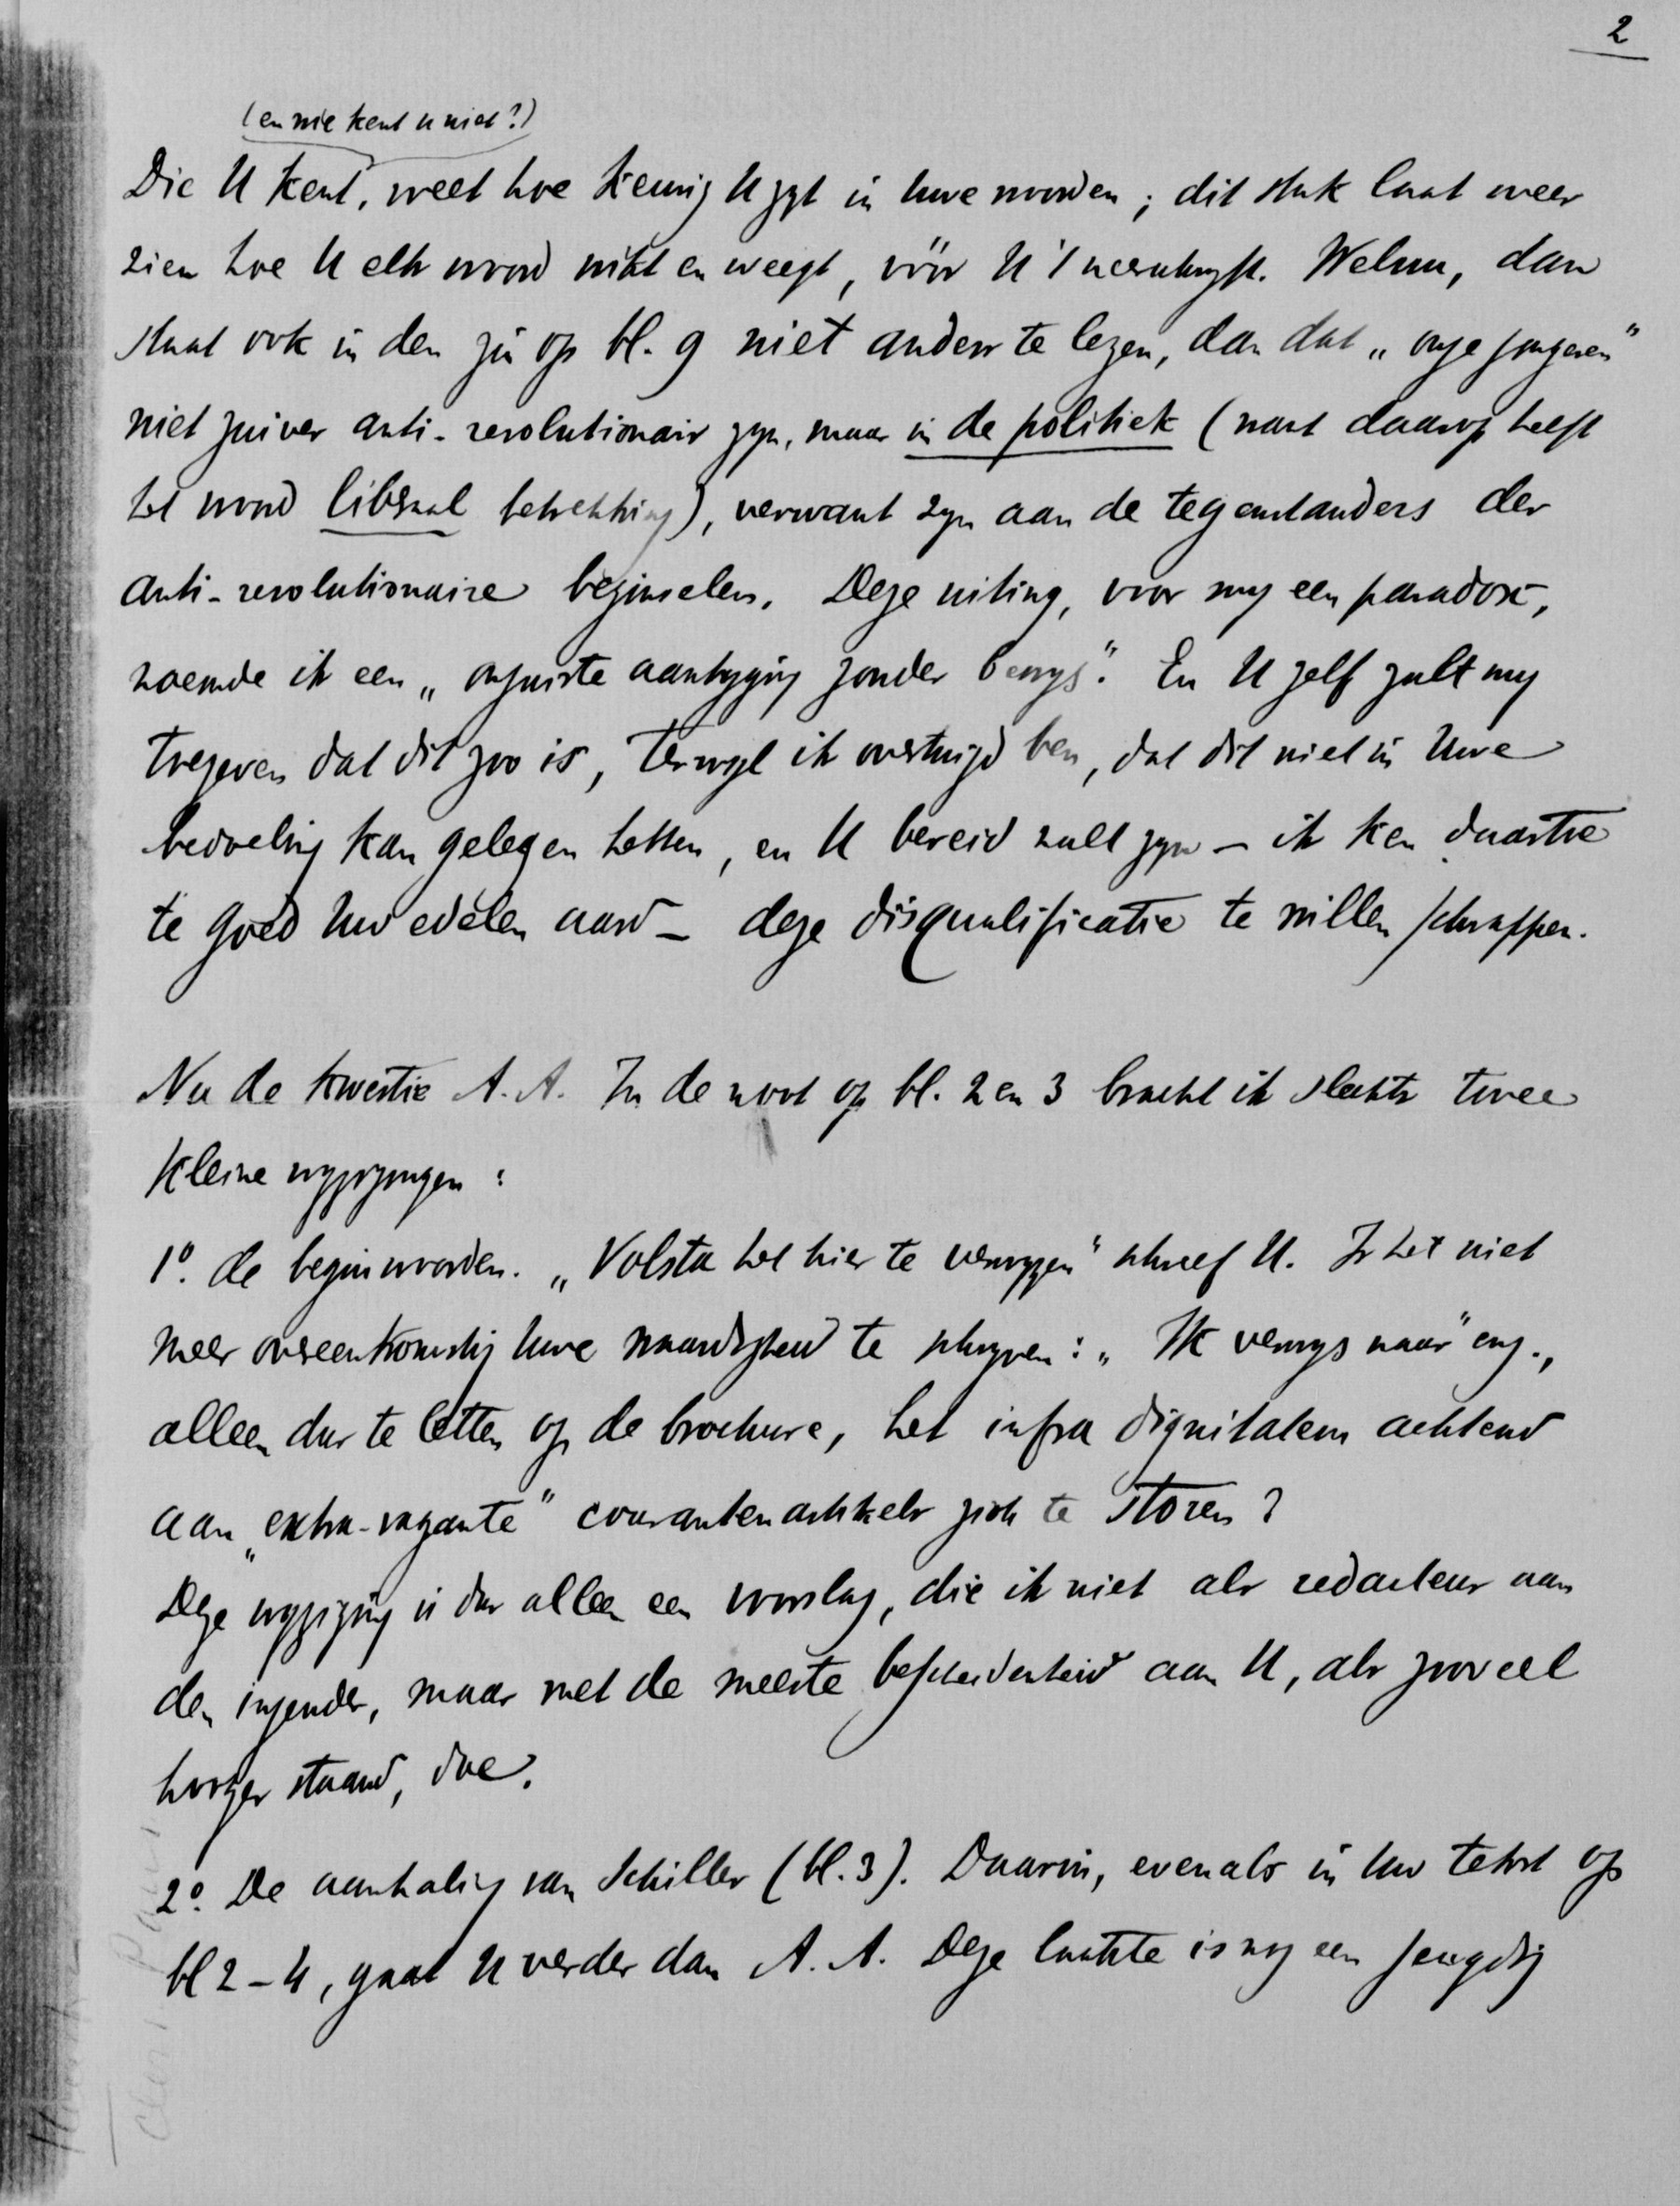 2
(en wie kent U niet?)
Die U kent, weet hoe keurig U zyt in Uwe woorden; dit stuk laat weer
zien hoe U elk woord wikt en weegt, vóór U 't neerschryft. Welnu, dan
staat ook in den zin op bl. 9 niet anders te lezen, dan dat „onze jongeren"
niet zuiver anti-revolutionair zyn, maar in de politiek (want daarop heeft
het woord liberaal betrekking), verwant zyn aan de tegenstanders der
anti-revolutionaire beginselen. Deze uiting, voor my een paradox,
noemde ik een „onjuiste aantyging zonder bewys". En U zelf zult my
toegeven dat dit zoo is, terwyl ik overtuigd ben, dat dit niet in Uwe
bedoeling kan gelegen hebben, en U bereid zult zyn – ik ken daartoe
te goed Uw edelen aard – deze disqualificatie te willen schrappen.
Nu de kwestie A. A. In de noot op bl. 2 en 3 bracht ik slechts twee
kleine wyzigingen:
1º. de beginwoorden. „Volsta het hier te verwyzen" schreef U. Is het niet
meer overeenkomstig Uwe waardigheid te schryven: „Ik verwys naar" enz.,
alleen dus te letten op de brochure, het infra dignitatem achtend
aan „extra-vagante" courantenartikels zich te storen?
Deze wyziging is dus alleen een voorslag, die ik niet als redacteur aan
den inzender, maar met de meeste bescheidenheid aan U, als zooveel
hooger staand, doe.
2º. De aanhaling van Schiller (bl. 3). Daarin, evenals in Uw tekst op
bl 2–4, gaat U verder dan A. A. Deze laatste is nog een jeugdig